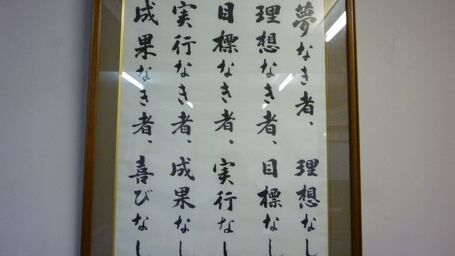 夢なき者、理想なし
理想なき者、目標なし
目標なき者、実行なし
実行なき者、成果なし
成果なき者、喜びなし